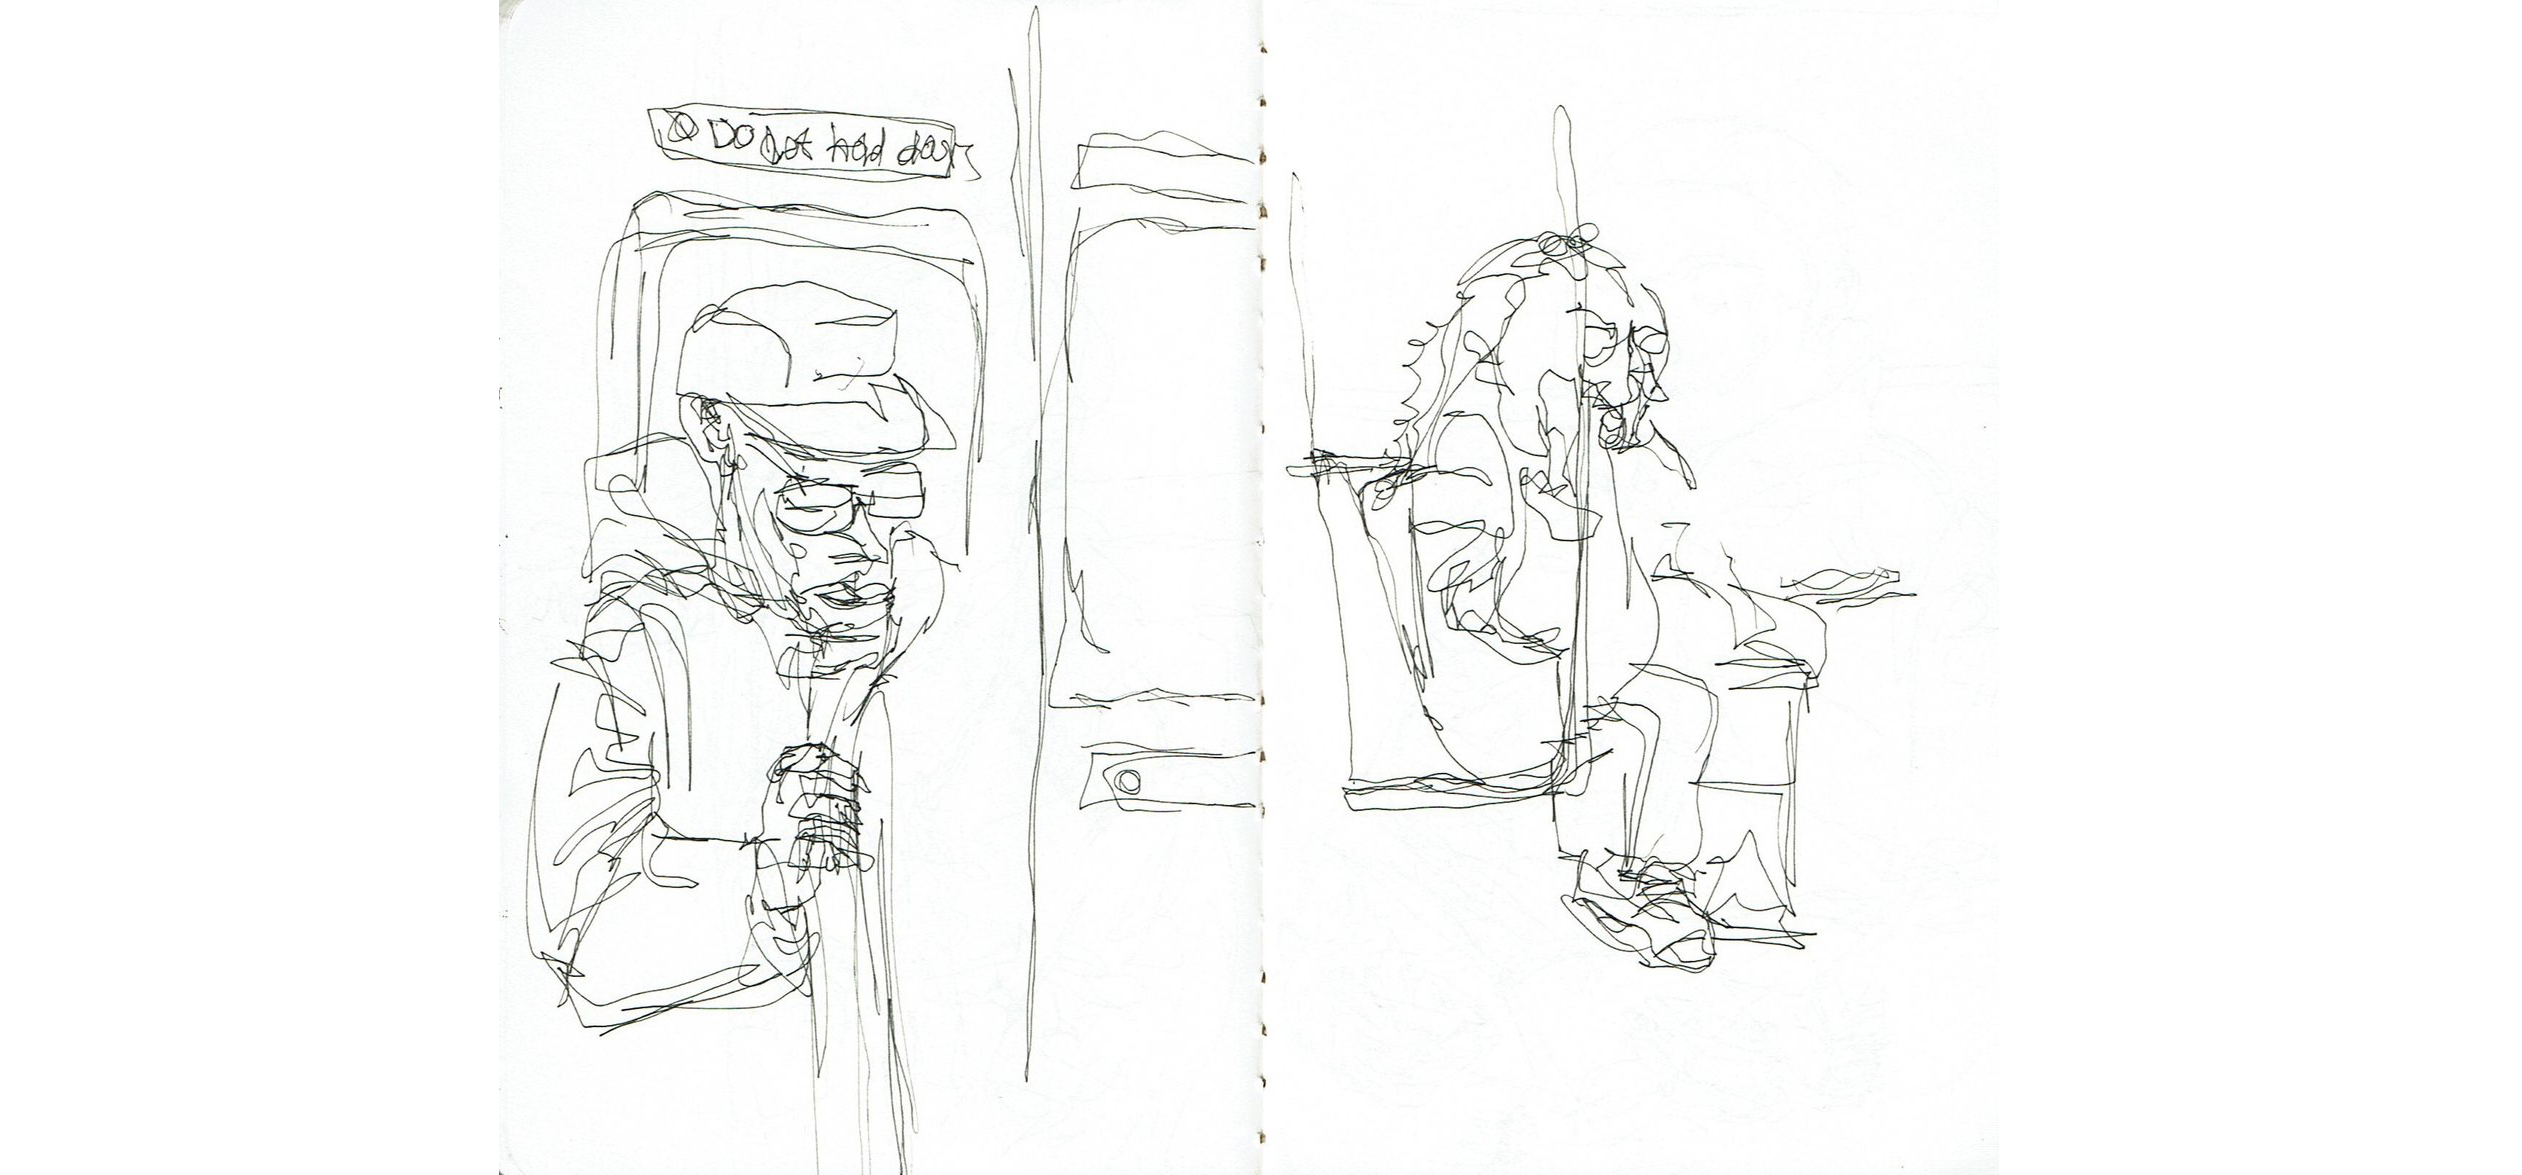 DO not hold doors